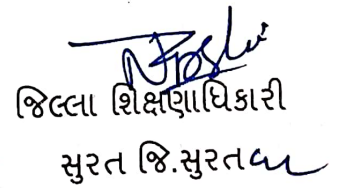 જિલ્લા શિક્ષણાધિકારી
સુરત જિ.સુરત